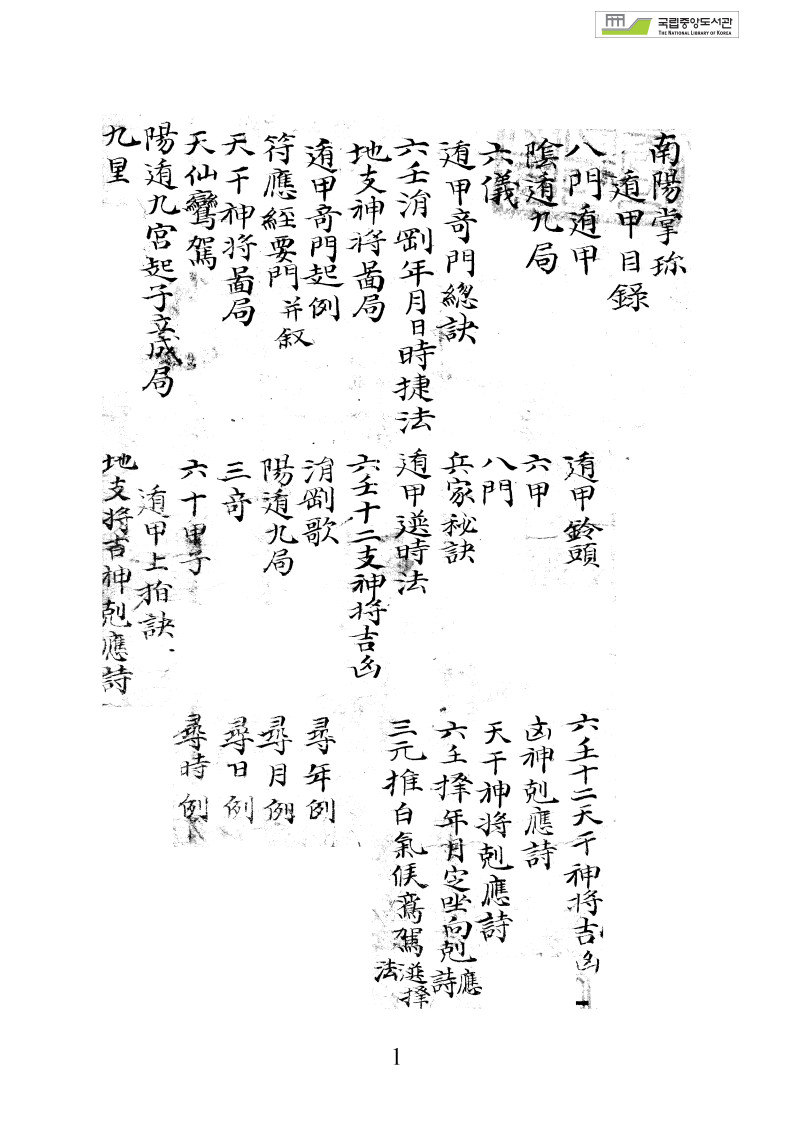 국립중앙도서관
THE NATIONAL LIBRARY OF KOREA
南陽掌珎
遁甲目録
八門遁甲
遁甲鈴頭
六壬十二天干神將吉凶
陰遁九局
六甲
凶神剋應詩
六儀
八門
天干神將剋應詩
遁甲竒門總訣
兵家秘訣
六壬擇年月定坐向剋應詩
六壬涓剛年月日時捷法
遁甲選時法
三元推白氣候鸞駕選擇法
地支神將啚局
六壬十二支神將吉凶
遁甲竒門起例
涓剛歌
尋年例
符應經要門并叙
陽遁九局
尋月例
天干神將啚局
三竒
尋日例
天仙鸞駕
六十甲子
尋時例
陽遁九宮起子立成局
遁甲上拍訣
九星
地支將吉神剋應詩
1